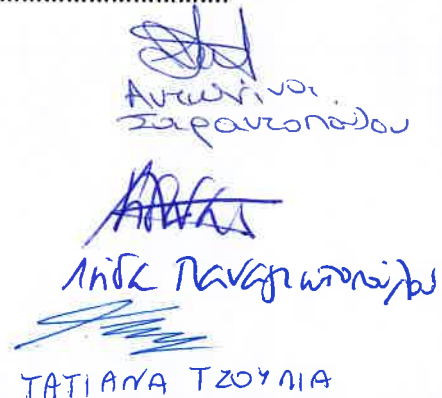 Αντωνίνα
Σαραντοπούλου
Λήδα Παναγιωτοπούλου
ΤΑΤΙΑΝΑ ΤΖΟΥΛΙΑ